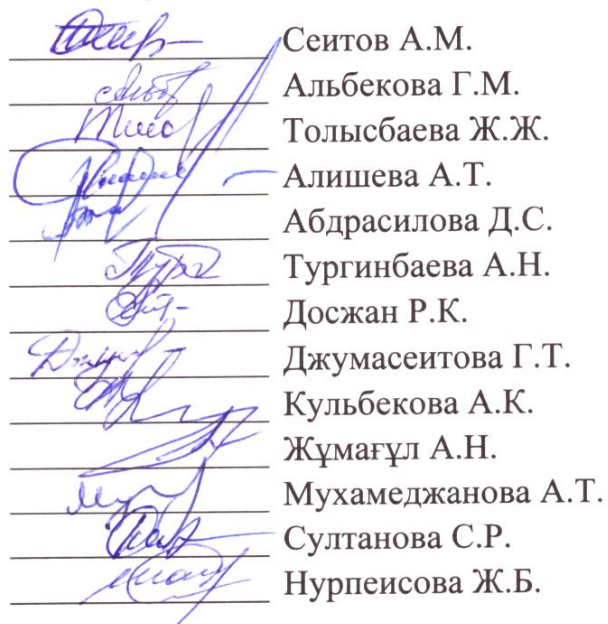 Сеитов А.М.
Альбекова Г.М.
Толысбаева Ж.Ж.
Алишева А.Т.
Абдрасилова Д.С.
Тургинбаева А.Н.
Досжан Р.К.
Джумасеитова Г.Т.
Кульбекова А.К.
Жұмағұл А.Н.
Мухамеджанова А.Т.
Султанова С.Р.
Нурпеисова Ж.Б.